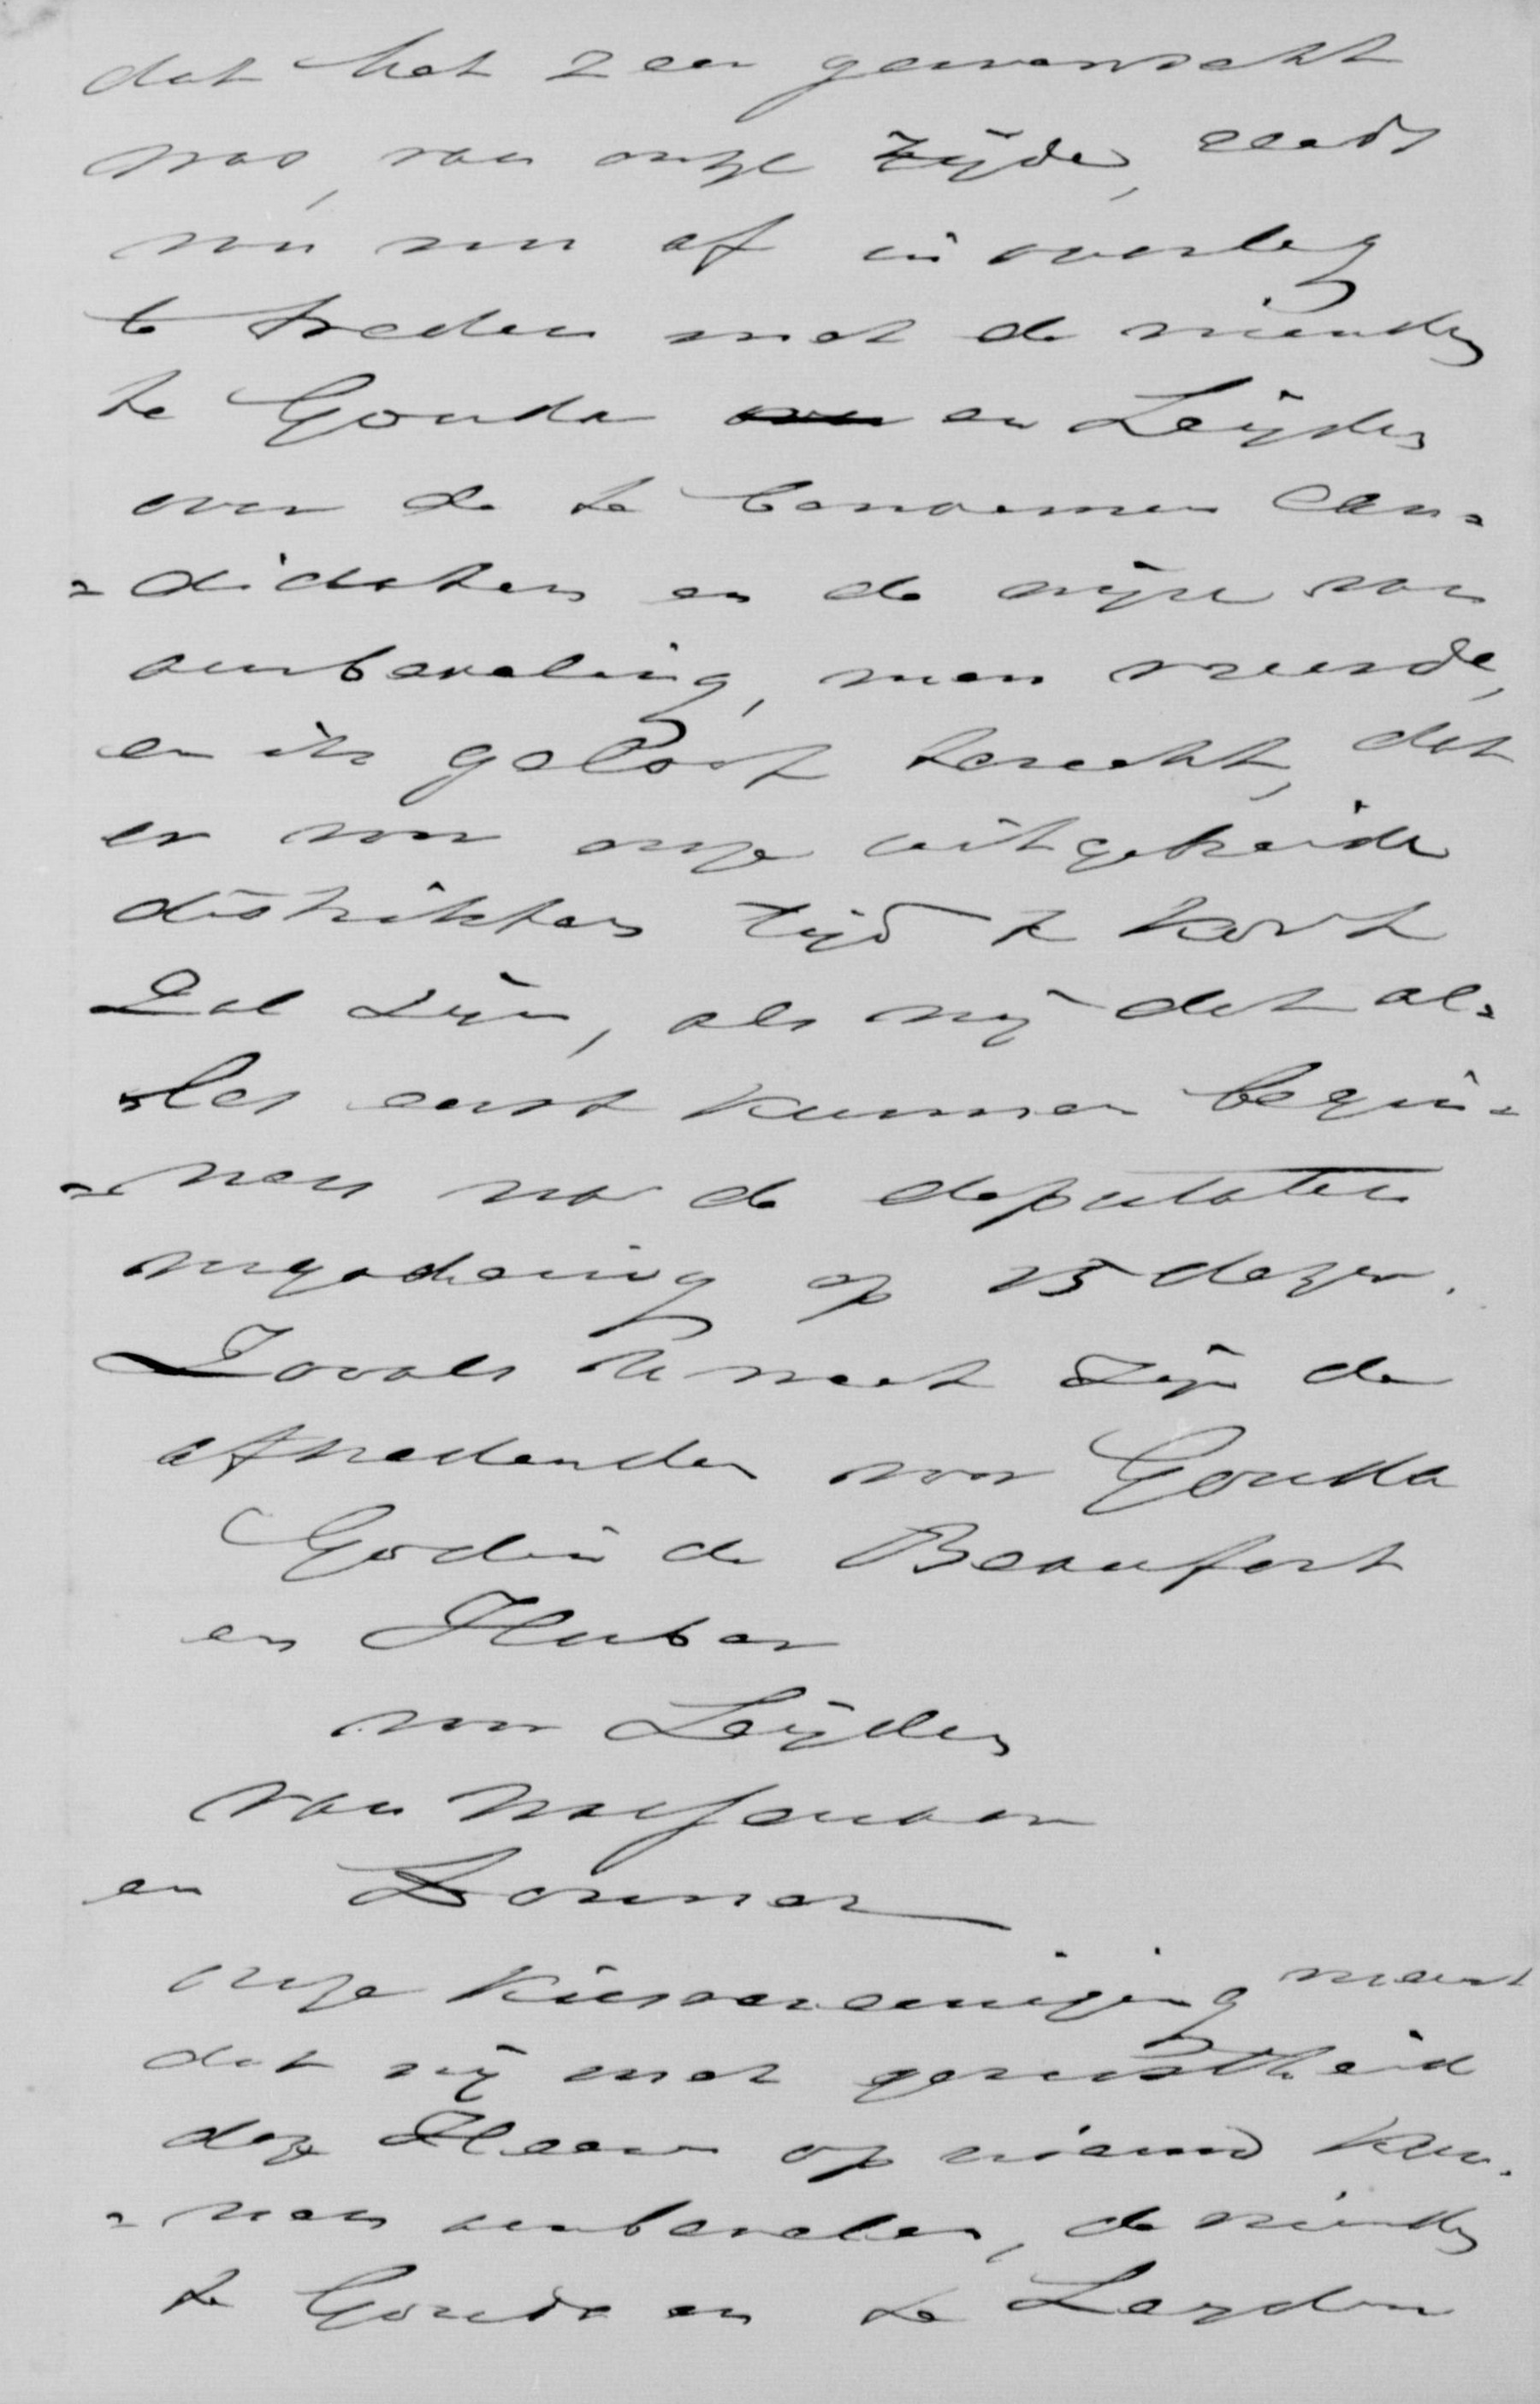 dat het zeer gewenscht
was, van onze zijde, reeds
van nu af in overleg
te treden met de vrienden
te Gouda en Leijden
over de te benoemen can=
=didaten en de wijze van
aanbeveling, men vreesde,
en ik geloof terecht, dat
er voor onze uitgebreide
distrikten tijd te kort
Zal zijn, als wij dat al=
=les eerst kunnen begin=
=nen na de deputaten
vergadering op 15 dezer.
Zooals U weet zijn de
aftredenden voor Gouda
Godin de Beaufort
en Huber
voor Leijden
van Wassenaer
en Donner
onze Kiesvereeniging meent
dat wij met gerustheid
deze Heeren op nieuw kun=
=nen aanbevelen, de vrienden
te Gouda en te Leyden